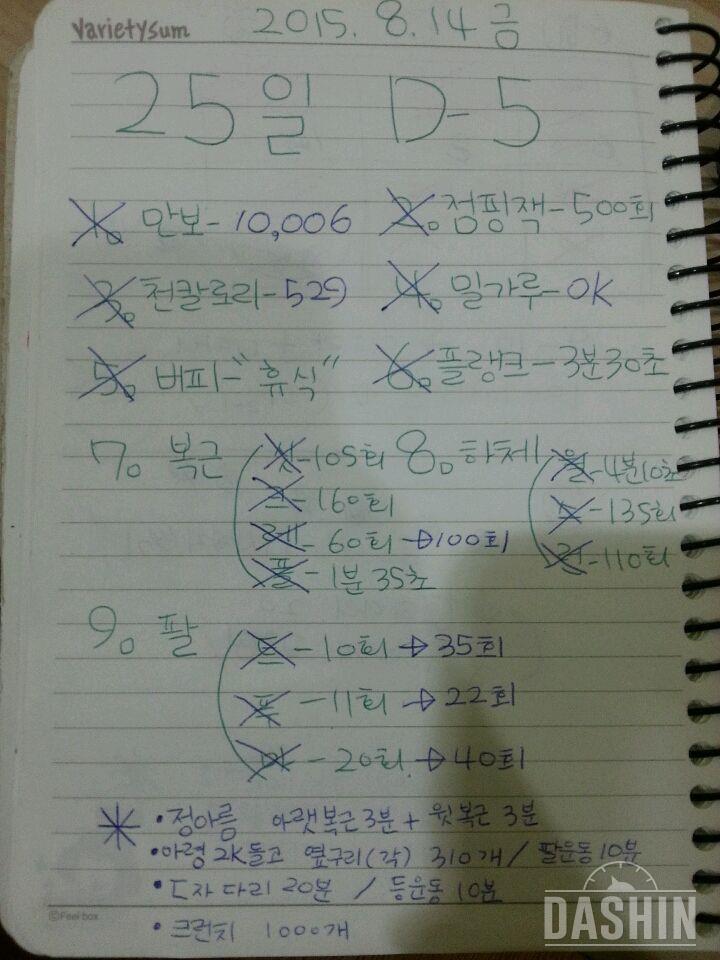 varietysum 2015. 8. 14 금
25일 D-5
1. 만보-10,006 2. 점핑잭-500회
3. 천칼로리-529 4. 밀가루-OK
5. 버피-"휴식" 6. 플랭크-3분30초
7. 복근 싯-105회 8. 하체 월-4분10초
크-160회 노-135회
레-60회→100회 런-110회
플-1분 35초
9. 팔 -10회→35회
푸-11회→22회
-20회→40회
* •정아름 아랫복근3분+윗복근 3분
•아령 2K들고 옆구리(각) 310개/ 팔운동10분
•ㄷ자 다리 20분 / 등운동 10분
•크런치 1000개
©Feel box
DASHIN